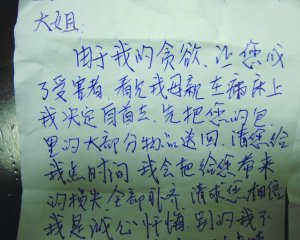 大姐:
由于我的贪欲、让您成
了受害者、看见我母亲在病床上
我决定自首去、先把您的包
里的大部分物品送回、请您给
我点时间、我会把给您带来
的损失全部补齐、请求您相信
我是诚心忏悔、别的我不